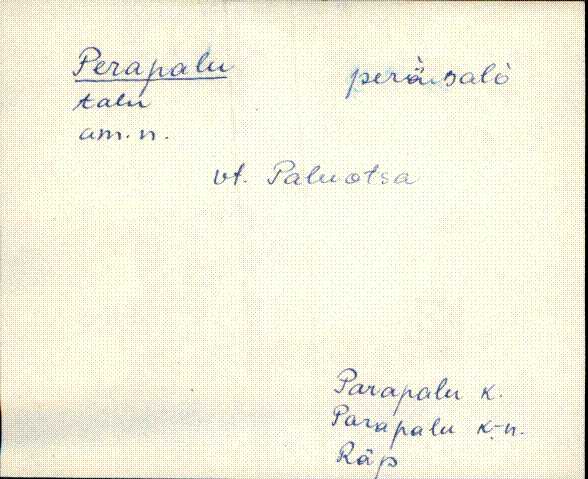 Perapalu
talu
am. n.
vt. Paluotsa
Parapalu k.
Parapalu k.-n.
Räp